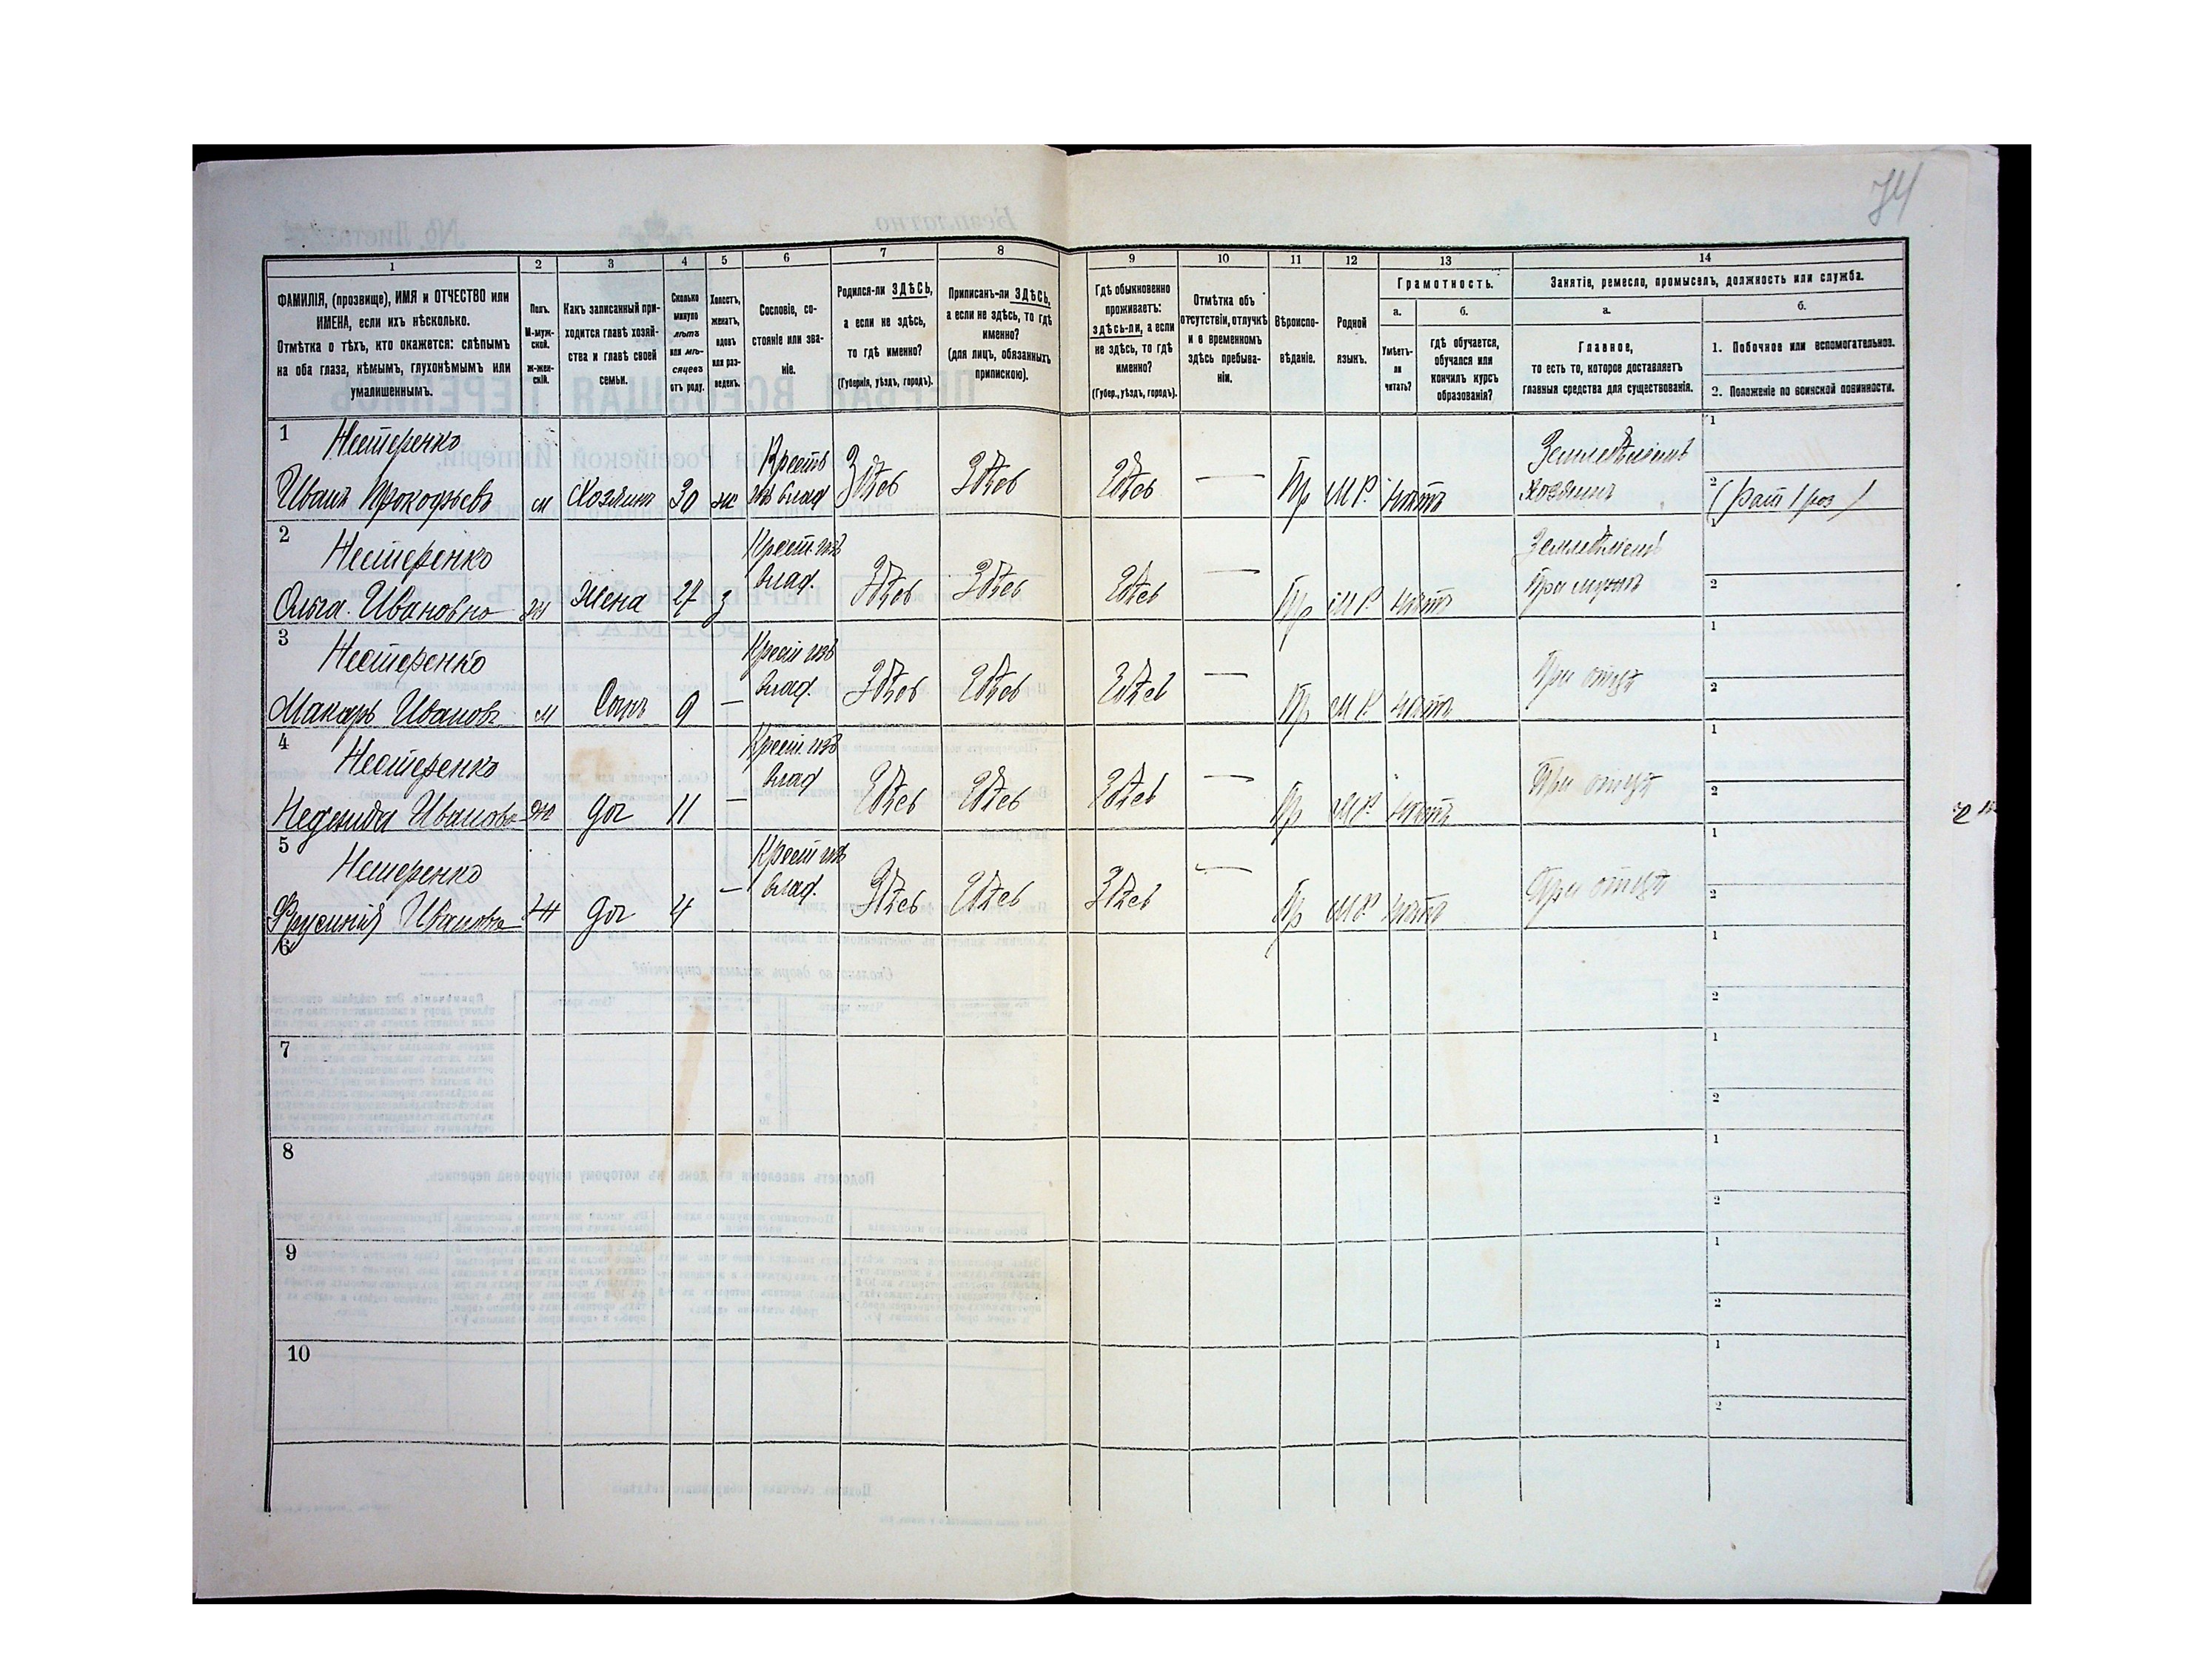 74
1 2 3 4 5 6 7 8 9 10 11 12 13 14
ФАМИЛІЯ, (прозвище), ИМЯ и ОТЧЕСТВО или
ИМЕНА, если ихъ нѣсколько.
Отмѣтка о тѣхъ, кто окажется: слѣпымъ
на оба глаза, нѣмымъ, глухонѣмымъ или
умалишеннымъ.
Полъ.
М-муж-
ской.
ж-жен-
скій.
Какъ записанный при-
ходится главѣ хозяй-
ства и главѣ своей
семьи.
Сколько
минуло
лѣтъ
или мѣ-
сяцевъ
отъ роду.
Холостъ,
женатъ,
вдовъ
или раз-
веденъ.
Сословіе, со-
стояніе или зва-
ніе.
Родился-ли ЗДѢСЬ,
а если не здѣсь,
то гдѣ именно?
(Губернія, уѣздъ, городъ).
Приписанъ-ли ЗДѢСЬ,
а если не здѣсь, то гдѣ
именно?
(для лицъ, обязанныхъ
припискою).
Гдѣ обыкновенно
проживаетъ:
здѣсь-ли, а если
не здѣсь, то гдѣ
именно?
(Губер., уѣздъ, городъ).
Отмѣтка объ
отсутствіи, отлучкѣ
и о временномъ
здѣсь пребыва-
ніи.
Вѣроиспо-
вѣданіе.
Родной
языкъ.
Грамотность.
а.
Умѣетъ-
ли
читать?
б.
гдѣ обучается,
обучался или
кончилъ курсъ
образованія?
Занятіе, ремесло, промыселъ, должность или служба.
а.
Главное,
то есть то, которое доставляетъ
главныя средства для существованія.
б.
1. Побочное или вспомогательное.
2. Положеніе по воинской повинности.
1 Нестеренко
Иванъ Прокофьевъ м Хозяинъ 30 ж Крестъ изъ влад Здѣсь Здѣсь Здѣсь — Пр М.Р. нѣтъ Земледѣлецъ хозяинъ 1 2
2 Нестеренко
Ольга Ивановна ж Жена 27 з Крест. изъ влад. Здѣсь Здѣсь Здѣсь — Пр М.Р. нѣтъ Земледѣлецъ При мужѣ 1 2
3 Нестеренко
Макаръ Ивановъ м Сынъ 9 — Крест изъ влад. Здѣсь Здѣсь Здѣсь — Пр М.Р. нѣтъ При отцѣ 1 2
4 Нестеренко
Ивановна ж доч 11 — Крест. изъ влад Здѣсь Здѣсь Здѣсь — Пр М.Р. нѣтъ При отцѣ 1 2
5 Нестеренко
Ивановна Ж доч 4 — Крест изъ влад. Здѣсь Здѣсь Здѣсь — Пр М.Р. нѣтъ При отцѣ 1 2
6 1 2
7 1 2
8 1 2
9 1 2
10 1 2